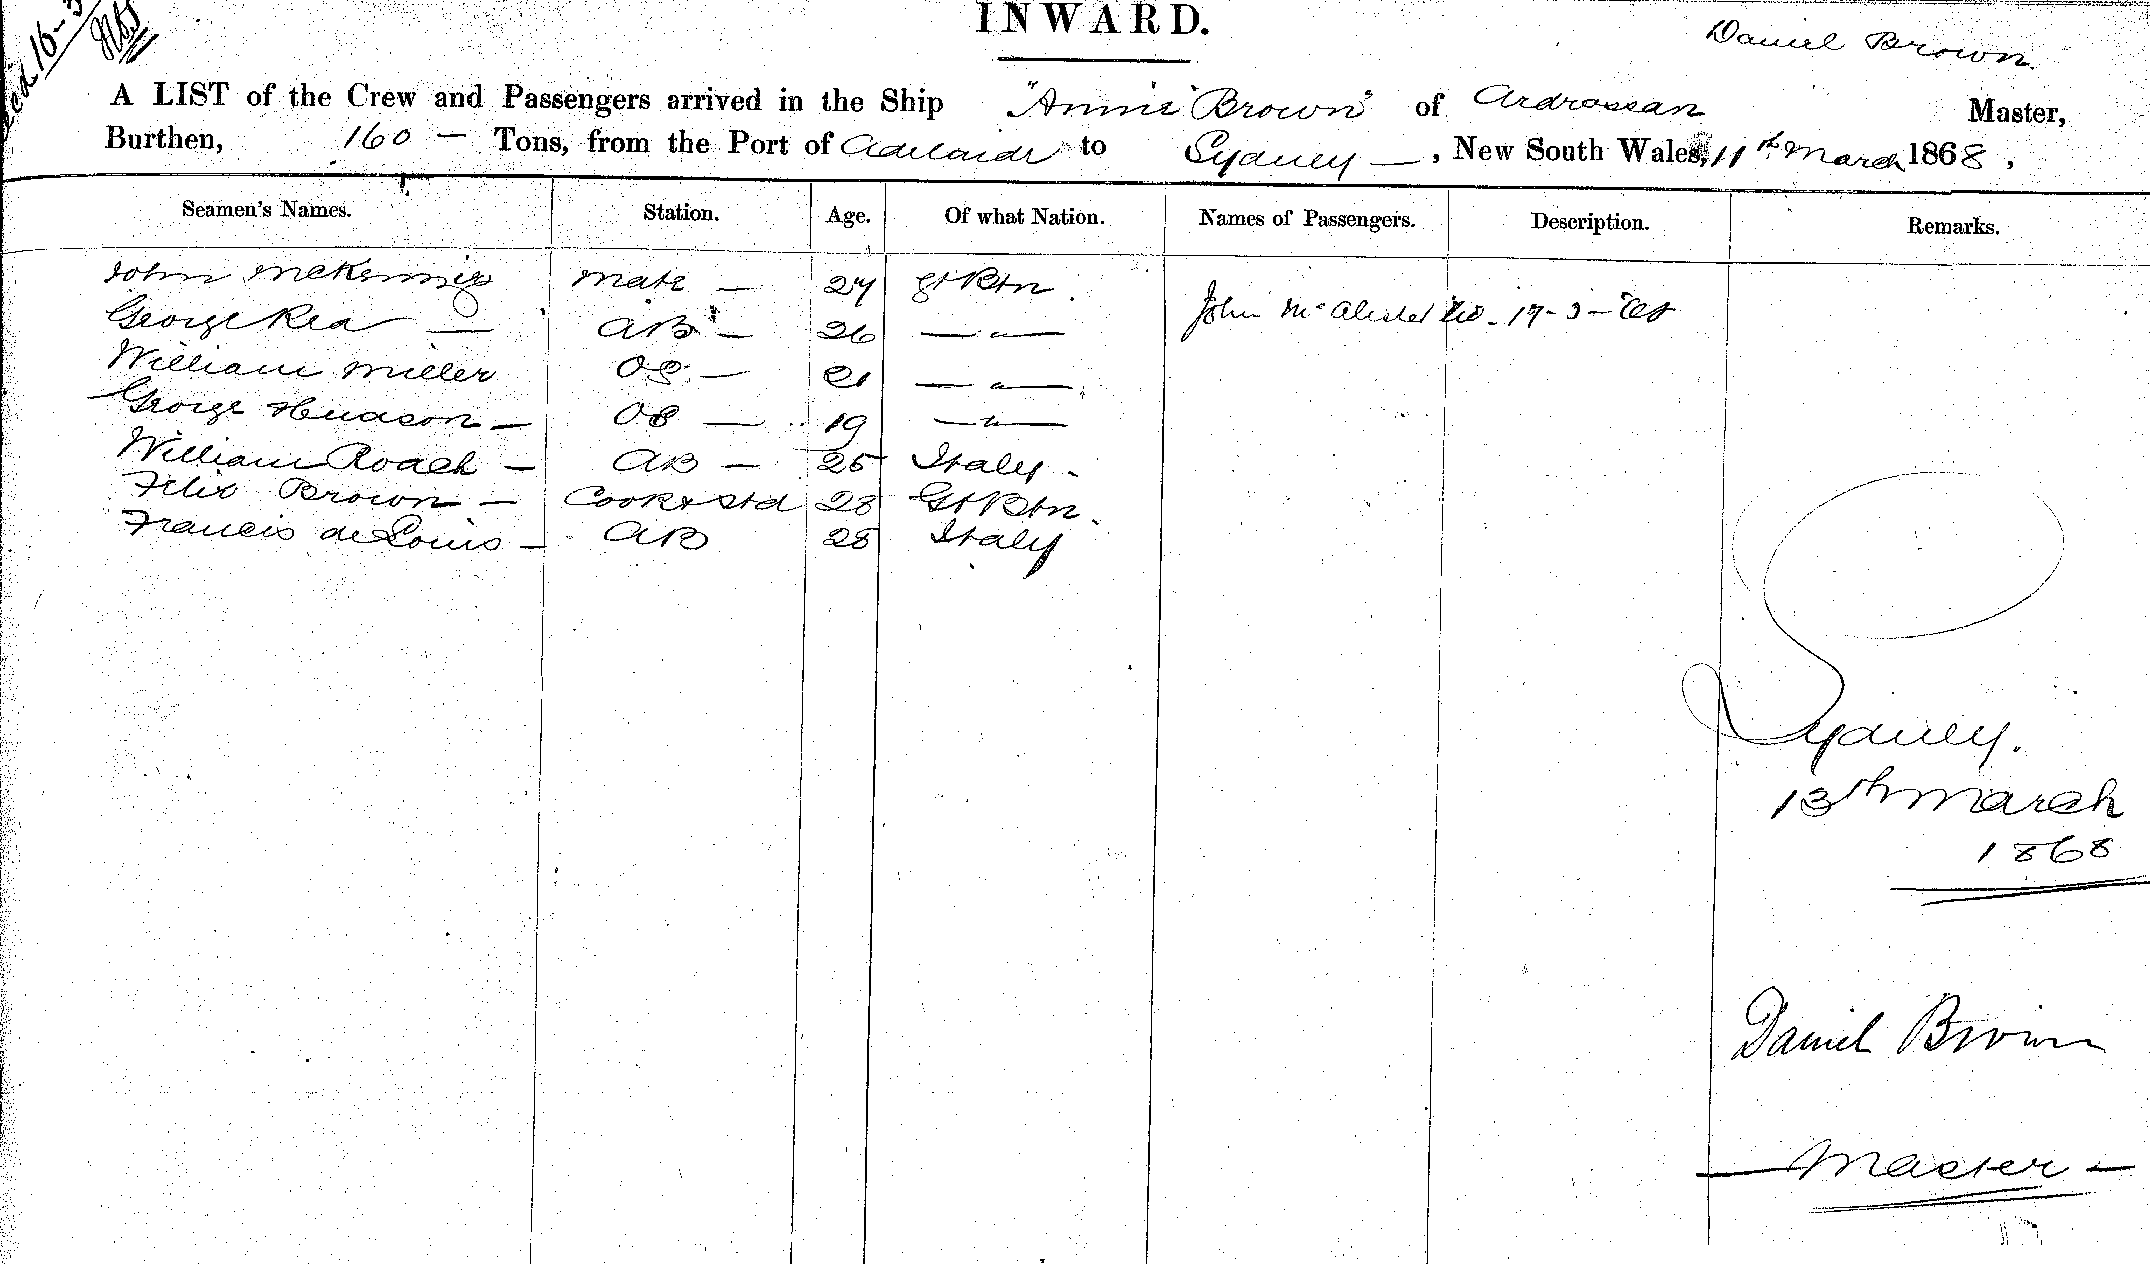 INWARD.
Daniel Brown
A LIST of the Crew and Passengers arrived in the Ship "Annie Brown" of Ardrossan Master,
Burthen, 160 — Tons, from the Port of Adelaide to Sydney —, New South Wales, 11th March 1868,
Seamen's Names. Station. Age. Of what Nation. Names of Passengers. Description. Remarks.
John Mate — 27 Gt Btn.
John 17-3-
George Rea — AB — 26 — " —
William Miller OS — 21 — " —
George Hudson — OS — 19 — " —
William Roach — AB — 25 Italy -
Felix Brown — Cook & Std 28 Gt Btn.
Francis de Louis — AB 28 Italy
Sydney.
13th March
1868
Daniel Brown
— Master —